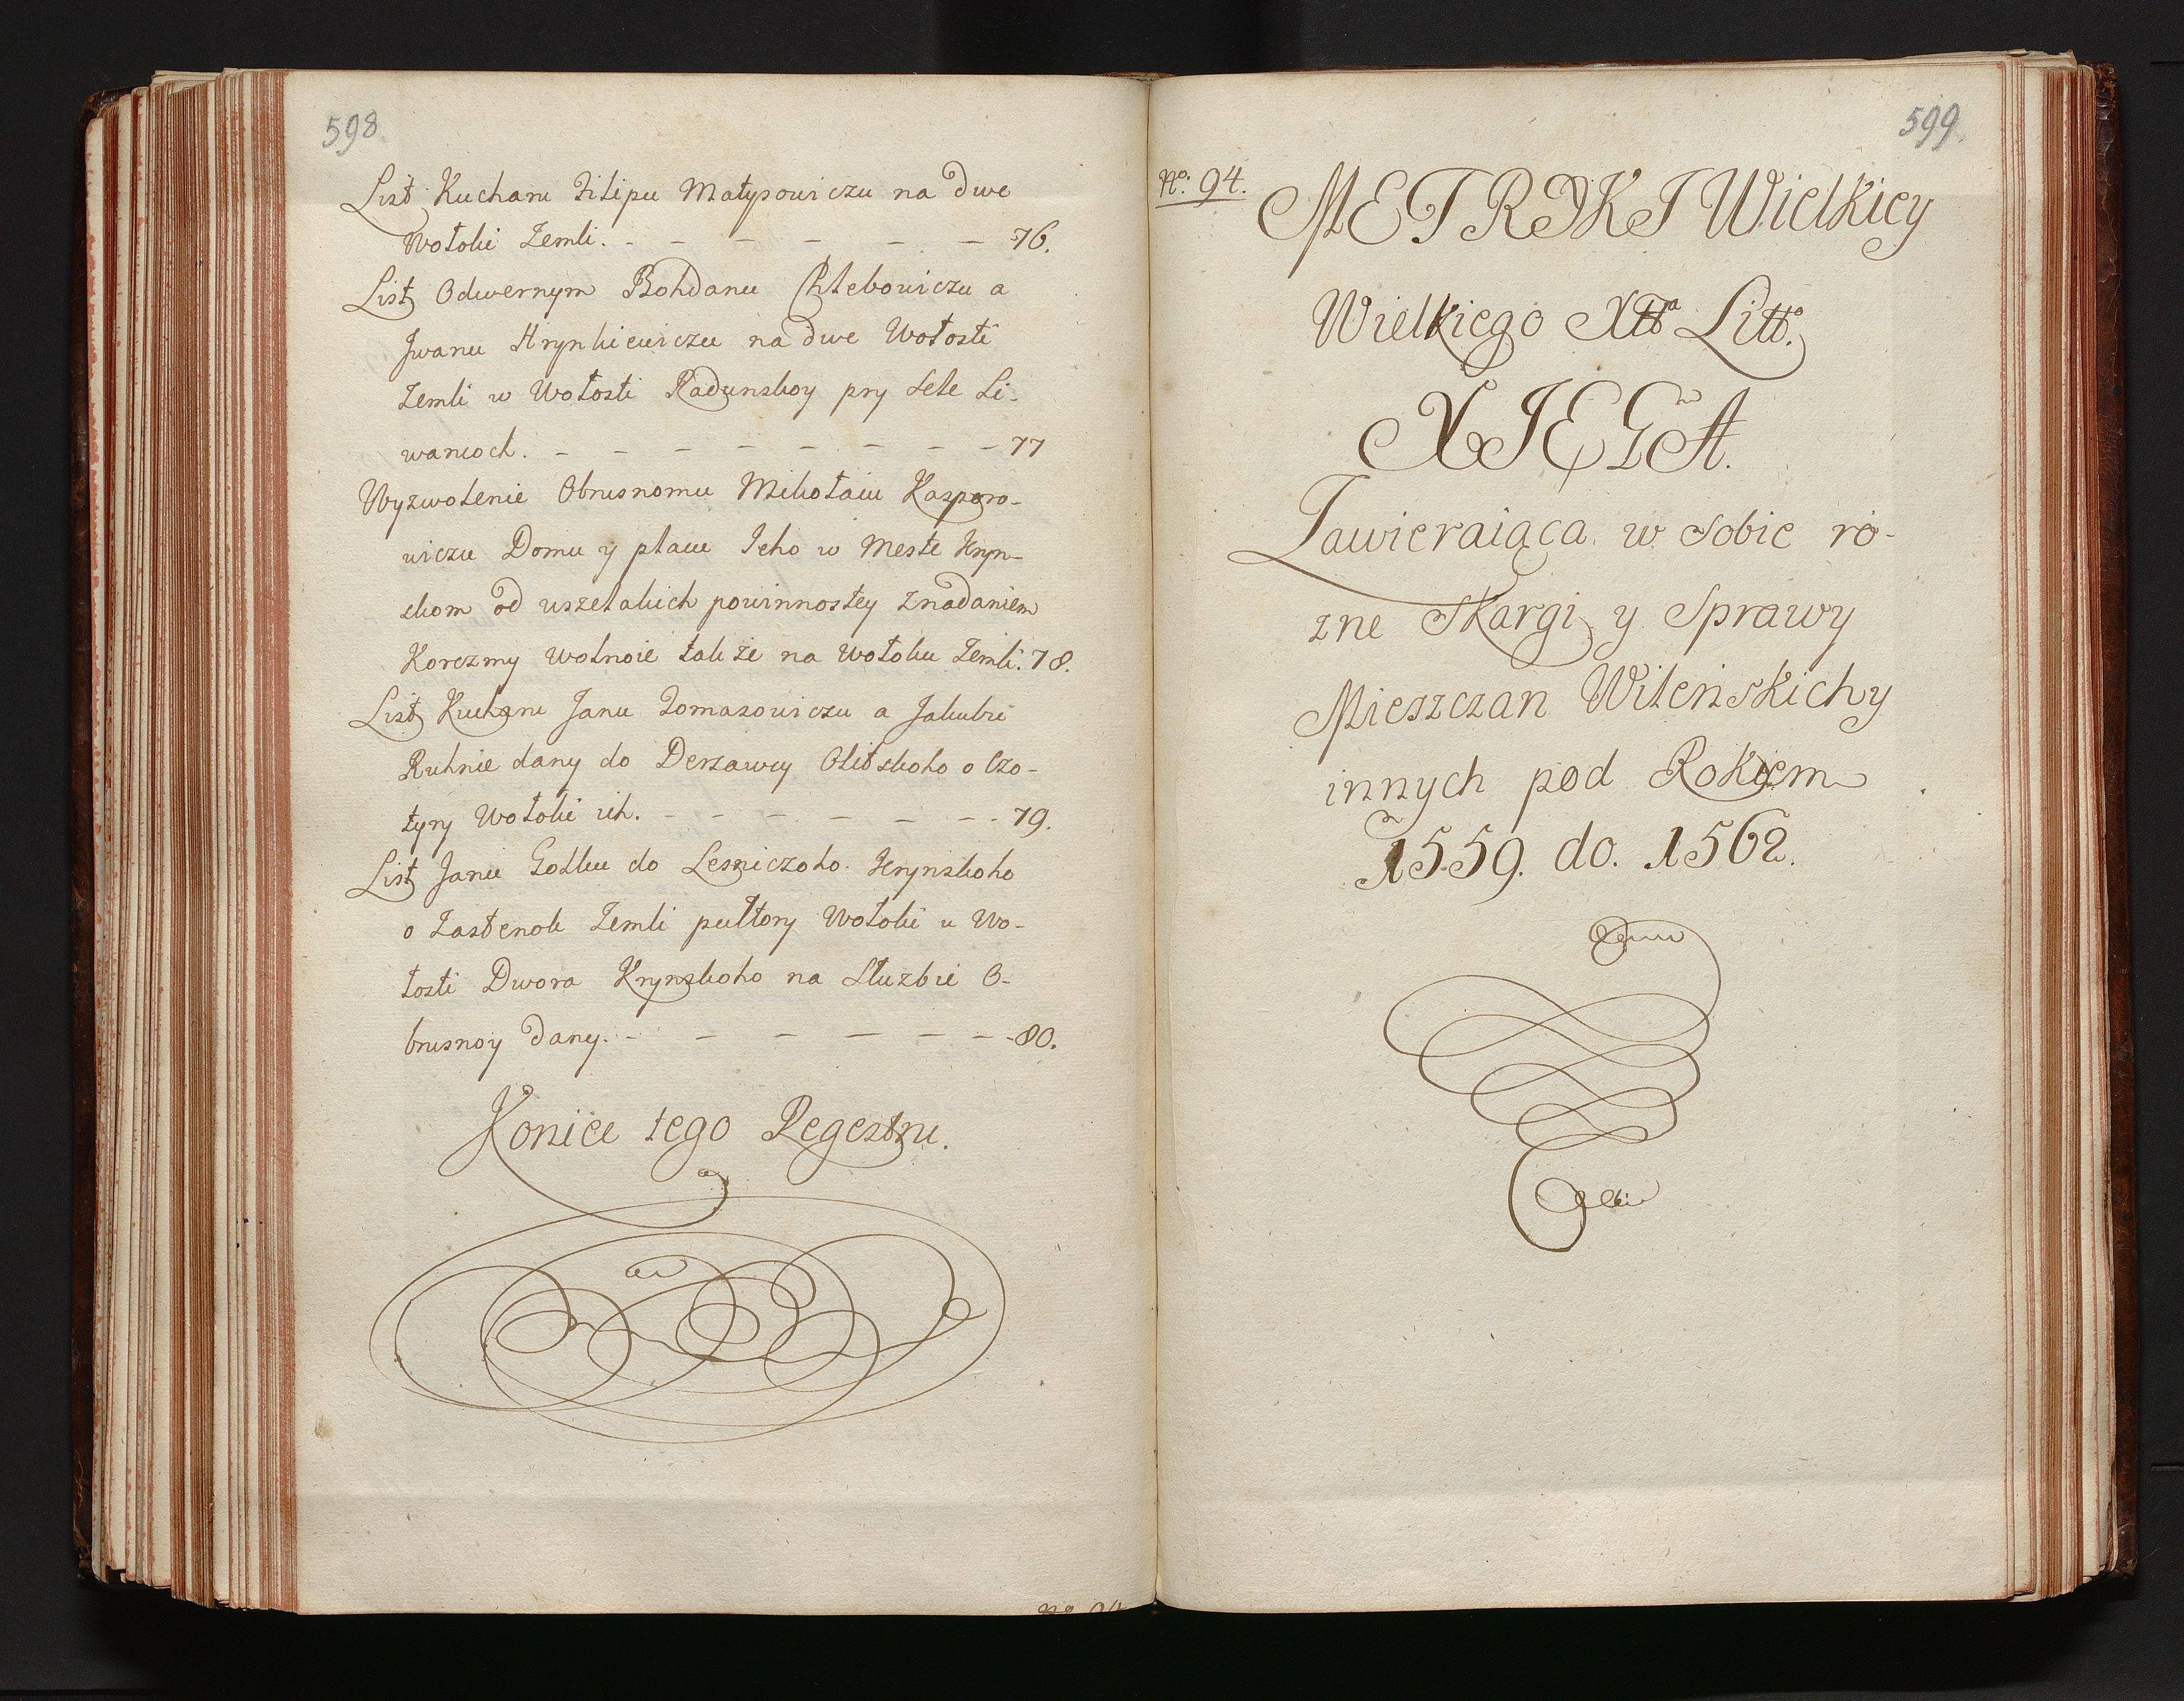 598
List Kucharu Filipu Matysowiczu na dwe
Wołoki Zemli. - - - - - - 76.
List Odwernym Bohdanu Chlebowiczu a
Jwanu Hrynkiewiczu na dwe Wołosti
Zemli w Wołosti Radunskoy pry Sele Li-
wancoch. - - - - - - - - 77
Wyzwolenie Obrusnomu Mikołaiu Kasparo-
wiczu Domu y placu Jeho w Meste Kryn-
skom od wszelakich powinnostey Znadaniem
Korczmy wolnoie tak że na Wołoku Zemli. 78.
List Kucharu Janu Tomasowiczu a Jakubu
Kuhnie dany do Derzawcy Olitskoho o Czo-
tyry Wołoki ich. - - - - - - - 79.
List Janu Golku do Lesniczoho Krynskoho
o Zastenok Zemli pułtory Wołoki u Wo-
łosti Dwora Krynskoho na Słuzbie O-
brusnoy dany. - - - - - - - 80.
Koniec tego Regestru.
599
No. 94.
METRYKI Wielkiey
Wielkiego Xttа Litto.
XIĘGA.
Zawieraiąca w Sobie ró-
zne Skargi y Sprawy
Mieszczan Wileńskich y
innych pod Rokiem
1559. do. 1562.